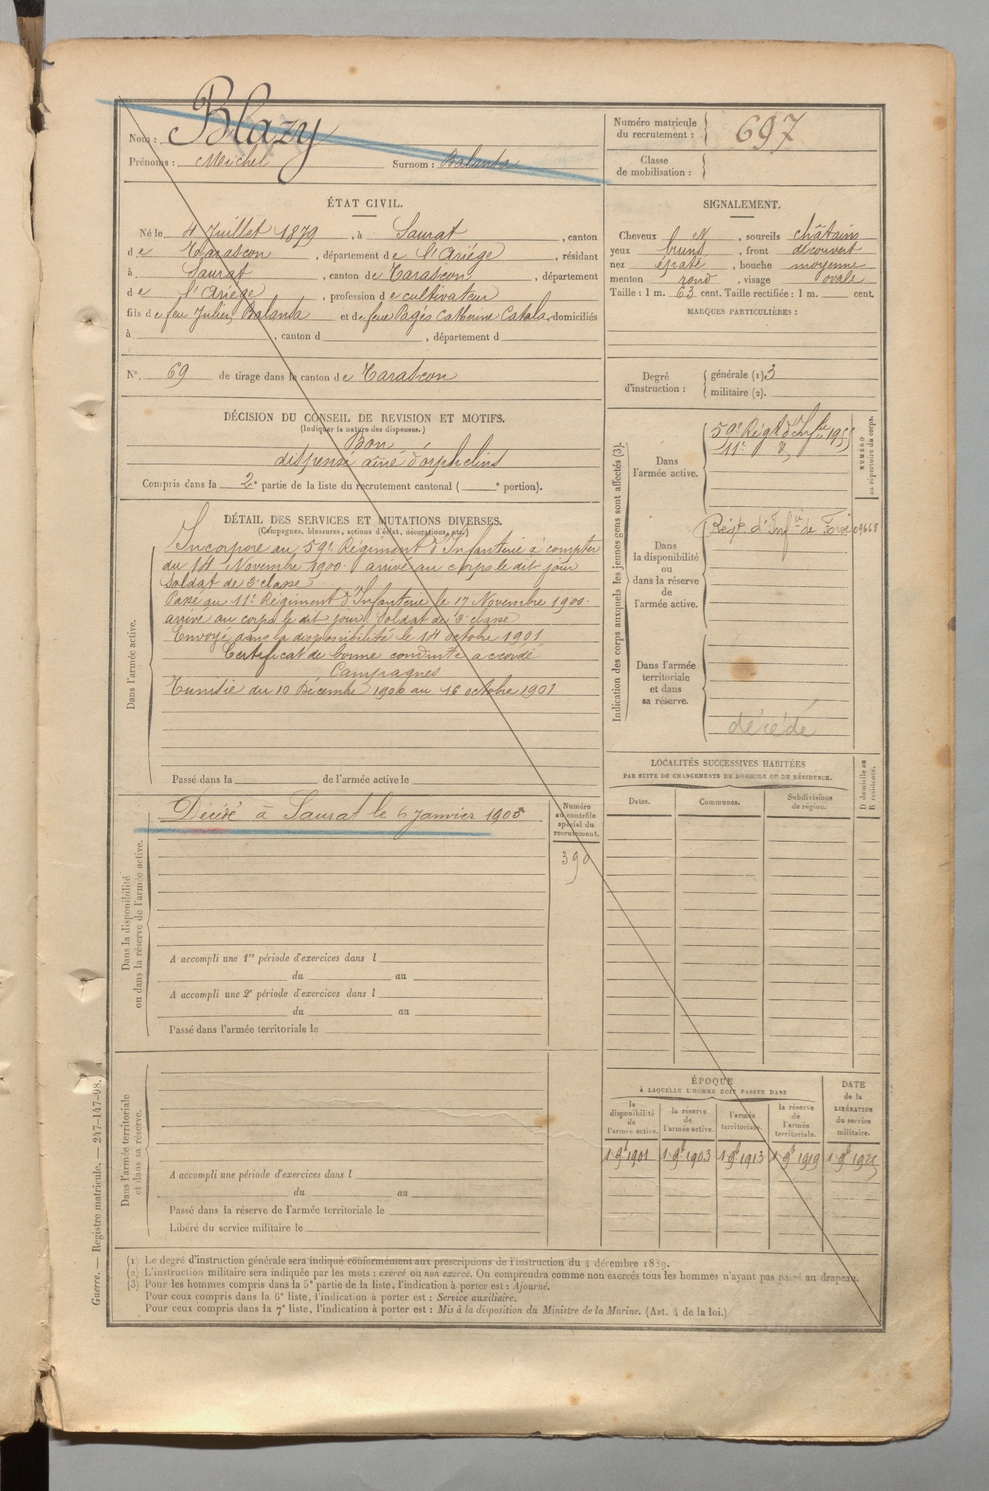 Nom : Blazy
Prénoms : Michel Surnom : Balanda
Numéro matricule du recrutement : 697
Classe de mobilisation :
ÉTAT CIVIL.
Né le 4 Juillet 1879, à Saurat, canton
de Tarascon, département de l'Ariége, résidant
à Saurat, canton de Tarascon, département
de l'Ariége, profession de cultivateur
fils de feu Julien, Balanda et de feue Pagès Catherine Catala, domiciliés
à , canton d , département d
N° 69 de tirage dans le canton de Tarascon
SIGNALEMENT.
Cheveux , sourcils châtains
yeux bruns, front découvert
nez épaté, bouche moyenne
menton rond, visage ovale
Taille : 1 m. 63 cent. Taille rectifiée : 1 m. cent.
MARQUES PARTICULIÈRES :
Degré d'instruction : générale (1) 3
militaire (2).
DÉCISION DU CONSEIL DE REVISION ET MOTIFS.
(Indiquer la nature des dispenses.)
Bon
dispensé aîné d'orphelins
Compris dans la 2e partie de la liste du recrutement cantonal ( e portion).
DÉTAIL DES SERVICES ET MUTATIONS DIVERSES.
(Campagnes, blessures, actions d'éclat, décorations, etc.)
Dans l'armée active.
Incorporé au 59e Régiment d'Infanterie à compter
du 14 Novembre 1900. arrivé au corps le dit jour
Soldat de 2e classe
Passé au 11e Régiment d'Infanterie le 17 Novembre 1900.
arrivé au corps le dit jour, Soldat de 2e classe
Envoyé dans la disponibilité le 14 octobre 1901
Certificat de bonne conduite accordé
Campagnes
Tunisie du 10 Décembre 1900 au 16 octobre 1901
Passé dans la de l'armée active le
Dans la disponibilité ou dans la réserve de l'armée active.
Décédé à Saurat le 6 Janvier
Numéro au contrôle spécial du recrutement.
390
A accompli une 1re période d'exercices dans l
du au
A accompli une 2e période d'exercices dans l
du au
Passé dans l'armée territoriale le
Dans l'armée territoriale et dans sa réserve.
A accompli une période d'exercices dans l
du au
Passé dans la réserve de l'armée territoriale le
Libéré du service militaire le
Indication des corps auxquels les jeunes gens sont affectés (3).
NUMÉRO au répertoire du corps.
Dans l'armée active.
59e Régt d'Infie
11e
Dans la disponibilité ou dans la réserve de l'armée active.
Régt. d'Infie de Foix
Dans l'armée territoriale et dans sa réserve.
décédé
LOCALITÉS SUCCESSIVES HABITÉES
PAR SUITE DE CHANGEMENTS DE DOMICILE OU DE RÉSIDENCE.
Dates. Communes. Subdivisions de région. D. domicile ou R. résidence.
ÉPOQUE
À LAQUELLE L'HOMME DOIT PASSER DANS
la disponibilité de l'armée active. la réserve de l'armée active. l'armée territoriale. la réserve de l'armée territoriale. DATE de la LIBÉRATION du service militaire.
1 9bre 1901 1 9bre 1903 1 9bre 1913 1 9bre 1919
(1) Le degré d'instruction générale sera indiqué conformément aux prescriptions de l'instruction du 4 décembre 1889.
(2) L'instruction militaire sera indiquée par les mots : exercé ou non exercé. On comprendra comme non exercés tous les hommes n'ayant pas passé au drapeau.
(3) Pour les hommes compris dans la 5e partie de la liste, l'indication à porter est : Ajourné.
Pour ceux compris dans la 6e liste, l'indication à porter est : Service auxiliaire.
Pour ceux compris dans la 7e liste, l'indication à porter est : Mis à la disposition du Ministre de la Marine. (Art. 4 de la loi.)
Guerre. — Registre matricule. — 247-147-98.